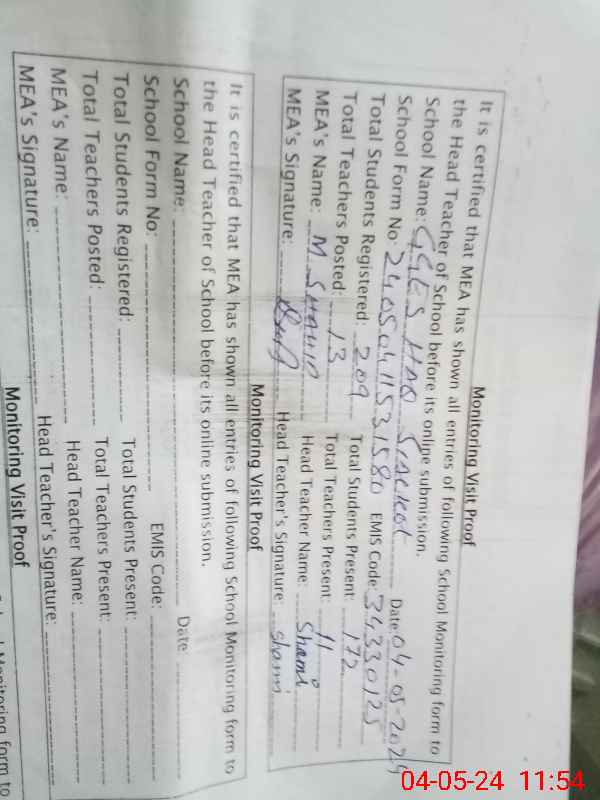 Monitoring Visit Proof
It is certified that MEA has shown all entries of following School Monitoring form to
the Head Teacher of School before its online submission.
School Name: GGES HAQ Sialkot Date: 04-05-2024
School Form No: 24050411531580 EMIS Code: 34330125
Total Students Registered: 209 Total Students Present: 172
Total Teachers Posted: 13 Total Teachers Present: 11
MEA's Name: M Shahid Head Teacher Name: Shami
MEA's Signature: Head Teacher's Signature: Shami
Monitoring Visit Proof
It is certified that MEA has shown all entries of following School Monitoring form to
the Head Teacher of School before its online submission.
School Name: Date:
School Form No: EMIS Code:
Total Students Registered: Total Students Present:
Total Teachers Posted: Total Teachers Present:
MEA's Name: Head Teacher Name:
MEA's Signature: Head Teacher's Signature:
Monitoring Visit Proof
Monitoring form to
04-05-24 11:54